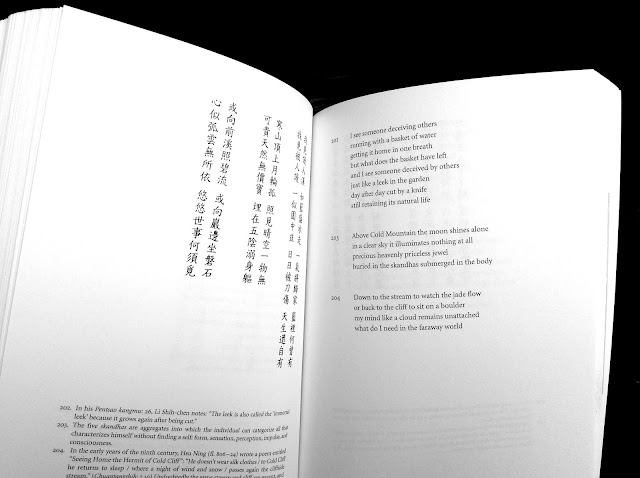 我見謾人漢 如籃盛水走 一氣將歸家 籃裡何曾有
我見被人謾 一似園中韭 日日被刀傷 天生還自有
寒山頂上月輪孤 照見晴空一物無
可貴天然無價寶 埋在五陰溺身軀
或向前溪照碧流 或向巖邊坐磐石
心似孤雲無所依 悠悠世事何須覓
202. In his Pentsao kangmu: 26, Li Shih-chen notes: "The leek is also called the 'immortal
leek' because it grows again after being cut."
203. The five skandhas are aggregates into which the individual can categorize all that
characterizes himself without finding a self: form, sensation, perception, impulse, and
consciousness.
204. In the early years of the ninth century, Hsu Ning (fl. 806–24) wrote a poem entitled
"Seeing Home the Hermit of Cold Cliff": "He doesn't wear silk clothes / to Cold Cliff
he returns to sleep / where a night of wind and snow / passes again the cliffside
202 I see someone deceiving others
running with a basket of water
getting it home in one breath
but what does the basket have left
and I see someone deceived by others
just like a leek in the garden
day after day cut by a knife
still retaining its natural life
203 Above Cold Mountain the moon shines alone
in a clear sky it illuminates nothing at all
precious heavenly priceless jewel
buried in the skandhas submerged in the body
204 Down to the stream to watch the jade flow
or back to the cliff to sit on a boulder
my mind like a cloud remains unattached
what do I need in the faraway world